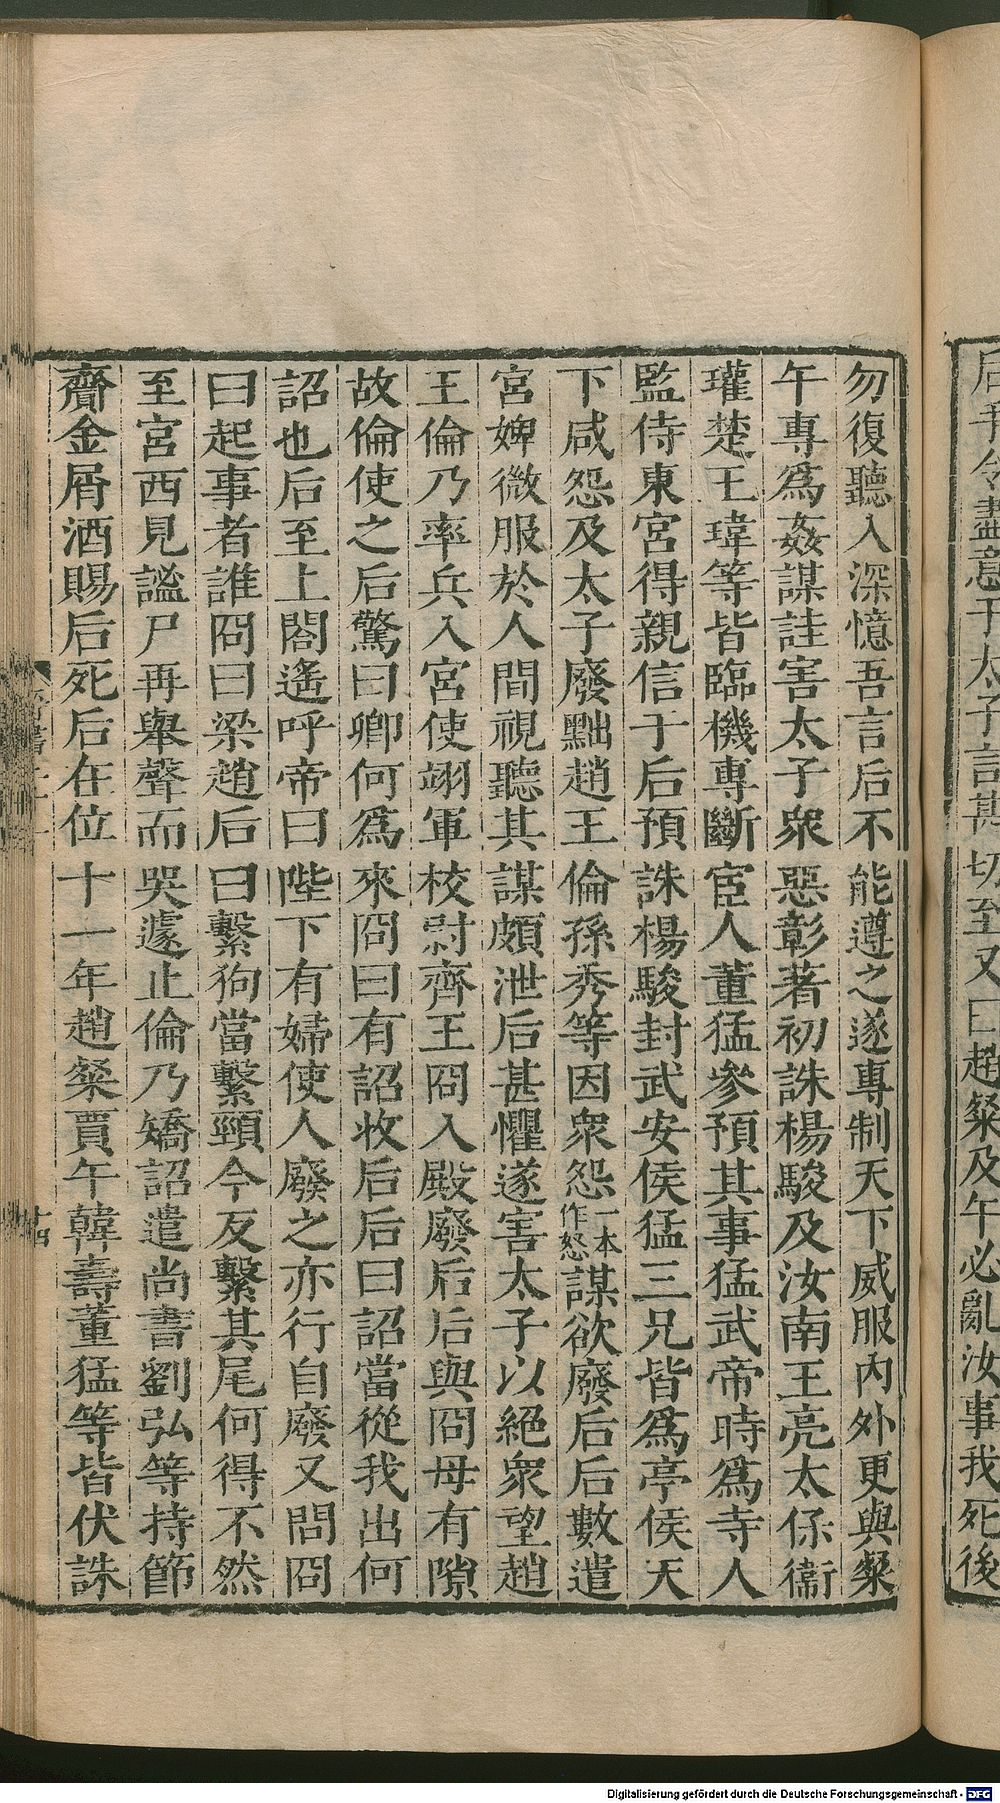 后執手令盡意于太子言甚切至又曰趙粲及午必亂汝事我死後
勿復聽入深憶吾言后不能遵之遂專制天下威服內外更與粲
午專爲姦謀誣害太子衆惡彰著初誅楊駿及汝南王亮太保衞
瓘楚王瑋等皆臨機專斷宦人董猛參預其事猛武帝時爲寺人
監侍東宮得親信于后預誅楊駿封武安侯猛三兄皆爲亭侯天
下咸怨及太子廢黜趙王倫孫秀等因衆怨一本作怒謀欲廢后后數遣
宮婢微服於人間視聽其謀頗泄后甚懼遂害太子以絕衆望趙
王倫乃率兵入宮使翊軍校尉齊王冏入殿廢后后與冏母有隙
故倫使之后驚曰卿何爲來冏曰有詔收后后曰詔當從我出何
詔也后至上閤遙呼帝曰陛下有婦使人廢之亦行自廢又問冏
曰起事者誰冏曰梁趙后曰繫狗當繫頸今反繫其尾何得不然
至宮西見謐尸再舉聲而哭遽止倫乃矯詔遣尚書劉弘等持節
齎金屑酒賜后死后在位十一年趙粲賈午韓壽董猛等皆伏誅
十四
Digitalisierung gefördert durch die Deutsche Forschungsgemeinschaft - DFG